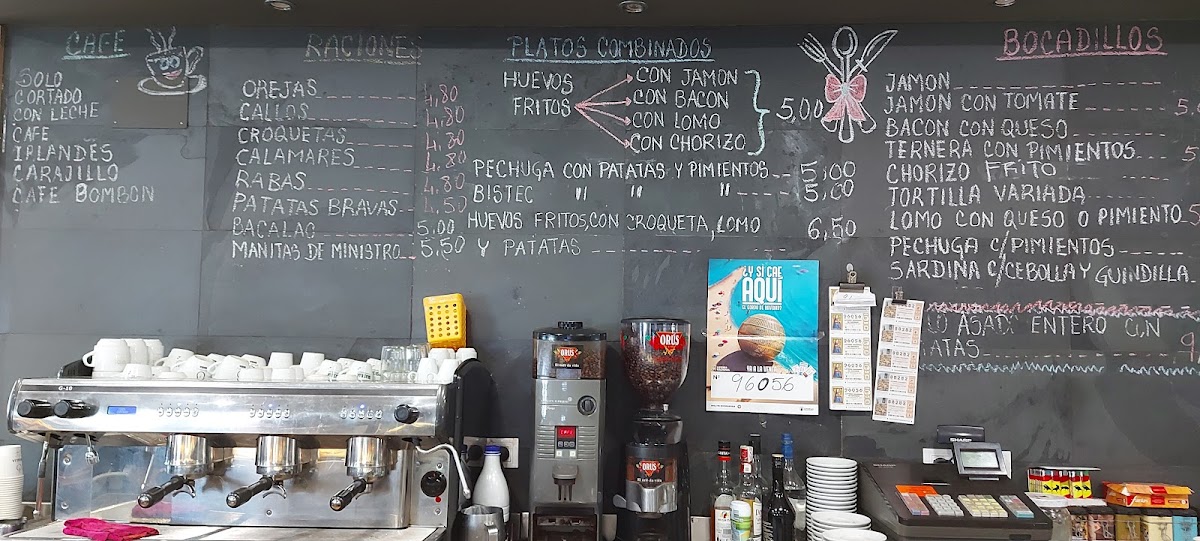 CAFE
SOLO
CORTADO
CON LECHE
CAFE
IRLANDES
CARAJILLO
CAFE BOMBON
RACIONES
OREJAS 4,80
CALLOS 4,80
CROQUETAS 4,80
CALAMARES 4,80
RABAS 4,80
PATATAS BRAVAS 4,50
BACALAO 5,00
MANITAS DE MINISTRO 5,50
PLATOS COMBINADOS
HUEVOS FRITOS
CON JAMON
CON BACON
CON LOMO
CON CHORIZO
5,00
PECHUGA CON PATATAS Y PIMIENTOS 5,00
BISTEC " " " 5,00
HUEVOS FRITOS, CON CROQUETA, LOMO 6,50
Y PATATAS
BOCADILLOS
JAMON
JAMON CON TOMATE 5
BACON CON QUESO
TERNERA CON PIMIENTOS 5
CHORIZO FRITO
TORTILLA VARIADA
LOMO CON QUESO O PIMIENTO 5
PECHUGA C/PIMIENTOS
SARDINA C/CEBOLLA Y GUINDILLA
ASADO ENTERO CON
9
¿Y SI CAE
AQUÍ
Nº 96056
G-10
ORUS
ORUS
ORUS
ORUS
SHARP